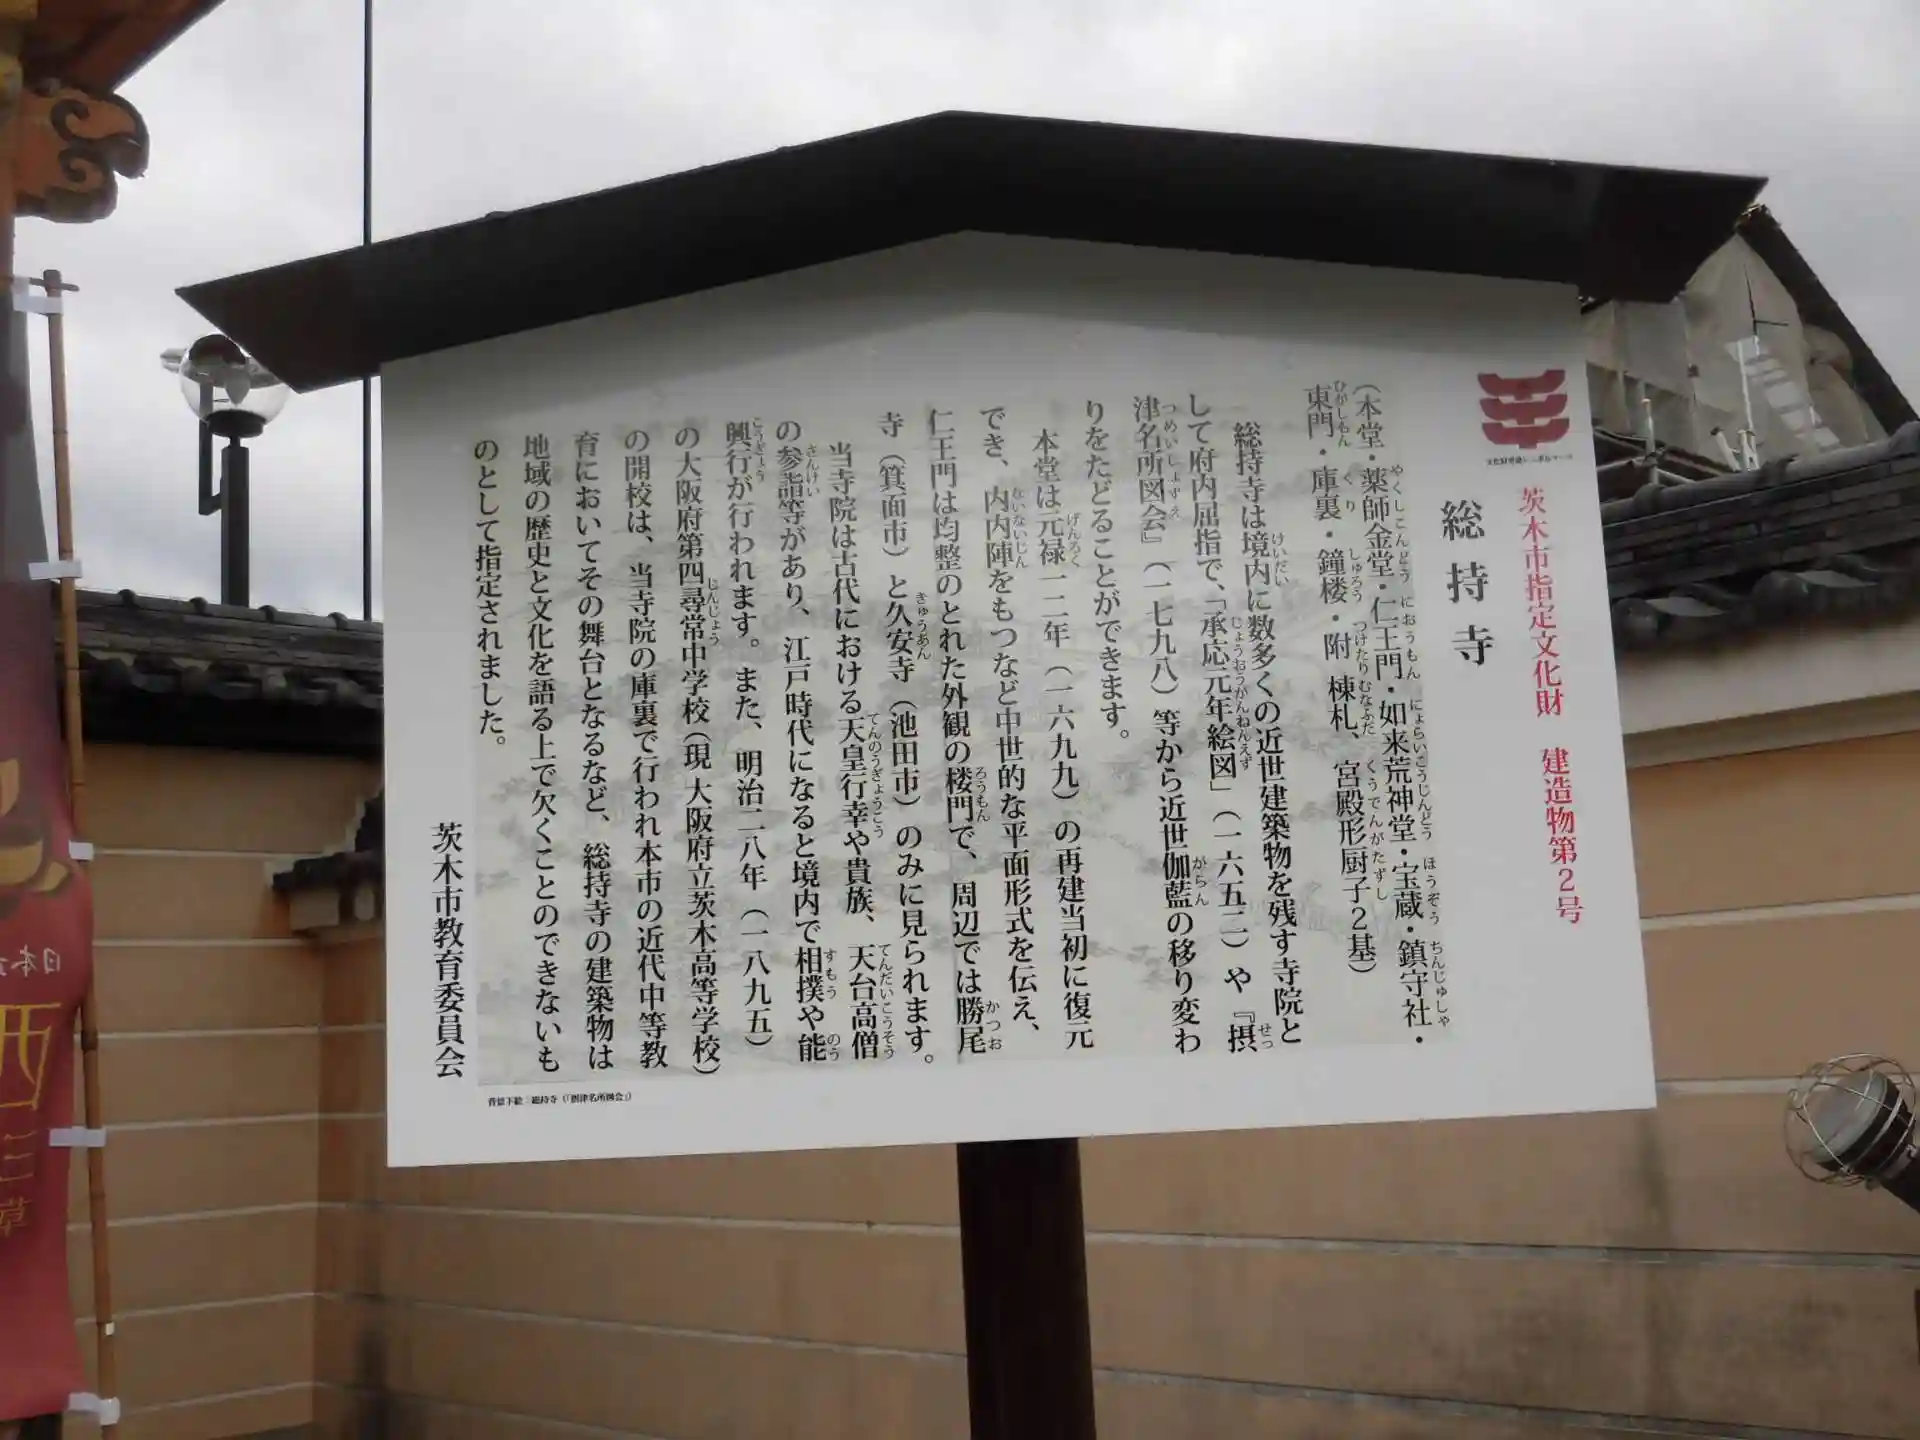 茨木市指定文化財　建造物第2号
総持寺
（本堂・薬師金堂・仁王門・如来荒神堂・宝蔵・鎮守社・
東門・庫裏・鐘楼・附 棟札、宮殿形厨子2基）
総持寺は境内に数多くの近世建築物を残す寺院と
して府内屈指で、「承応元年絵図」（一六五二）や『摂
津名所図会』（一七九八）等から近世伽藍の移り変わ
りをたどることができます。
本堂は元禄一二年（一六九九）の再建当初に復元
でき、内内陣をもつなど中世的な平面形式を伝え、
仁王門は均整のとれた外観の楼門で、周辺では勝尾
寺（箕面市）と久安寺（池田市）のみに見られます。
当寺院は古代における天皇行幸や貴族、天台高僧
の参詣等があり、江戸時代になると境内で相撲や能
興行が行われます。また、明治二八年（一八九五）
の大阪府第四尋常中学校（現 大阪府立茨木高等学校）
の開校は、当寺院の庫裏で行われ本市の近代中等教
育においてその舞台となるなど、総持寺の建築物は
地域の歴史と文化を語る上で欠くことのできないも
のとして指定されました。
茨木市教育委員会
背景下絵：総持寺（『摂津名所図会』）
日本
西
草